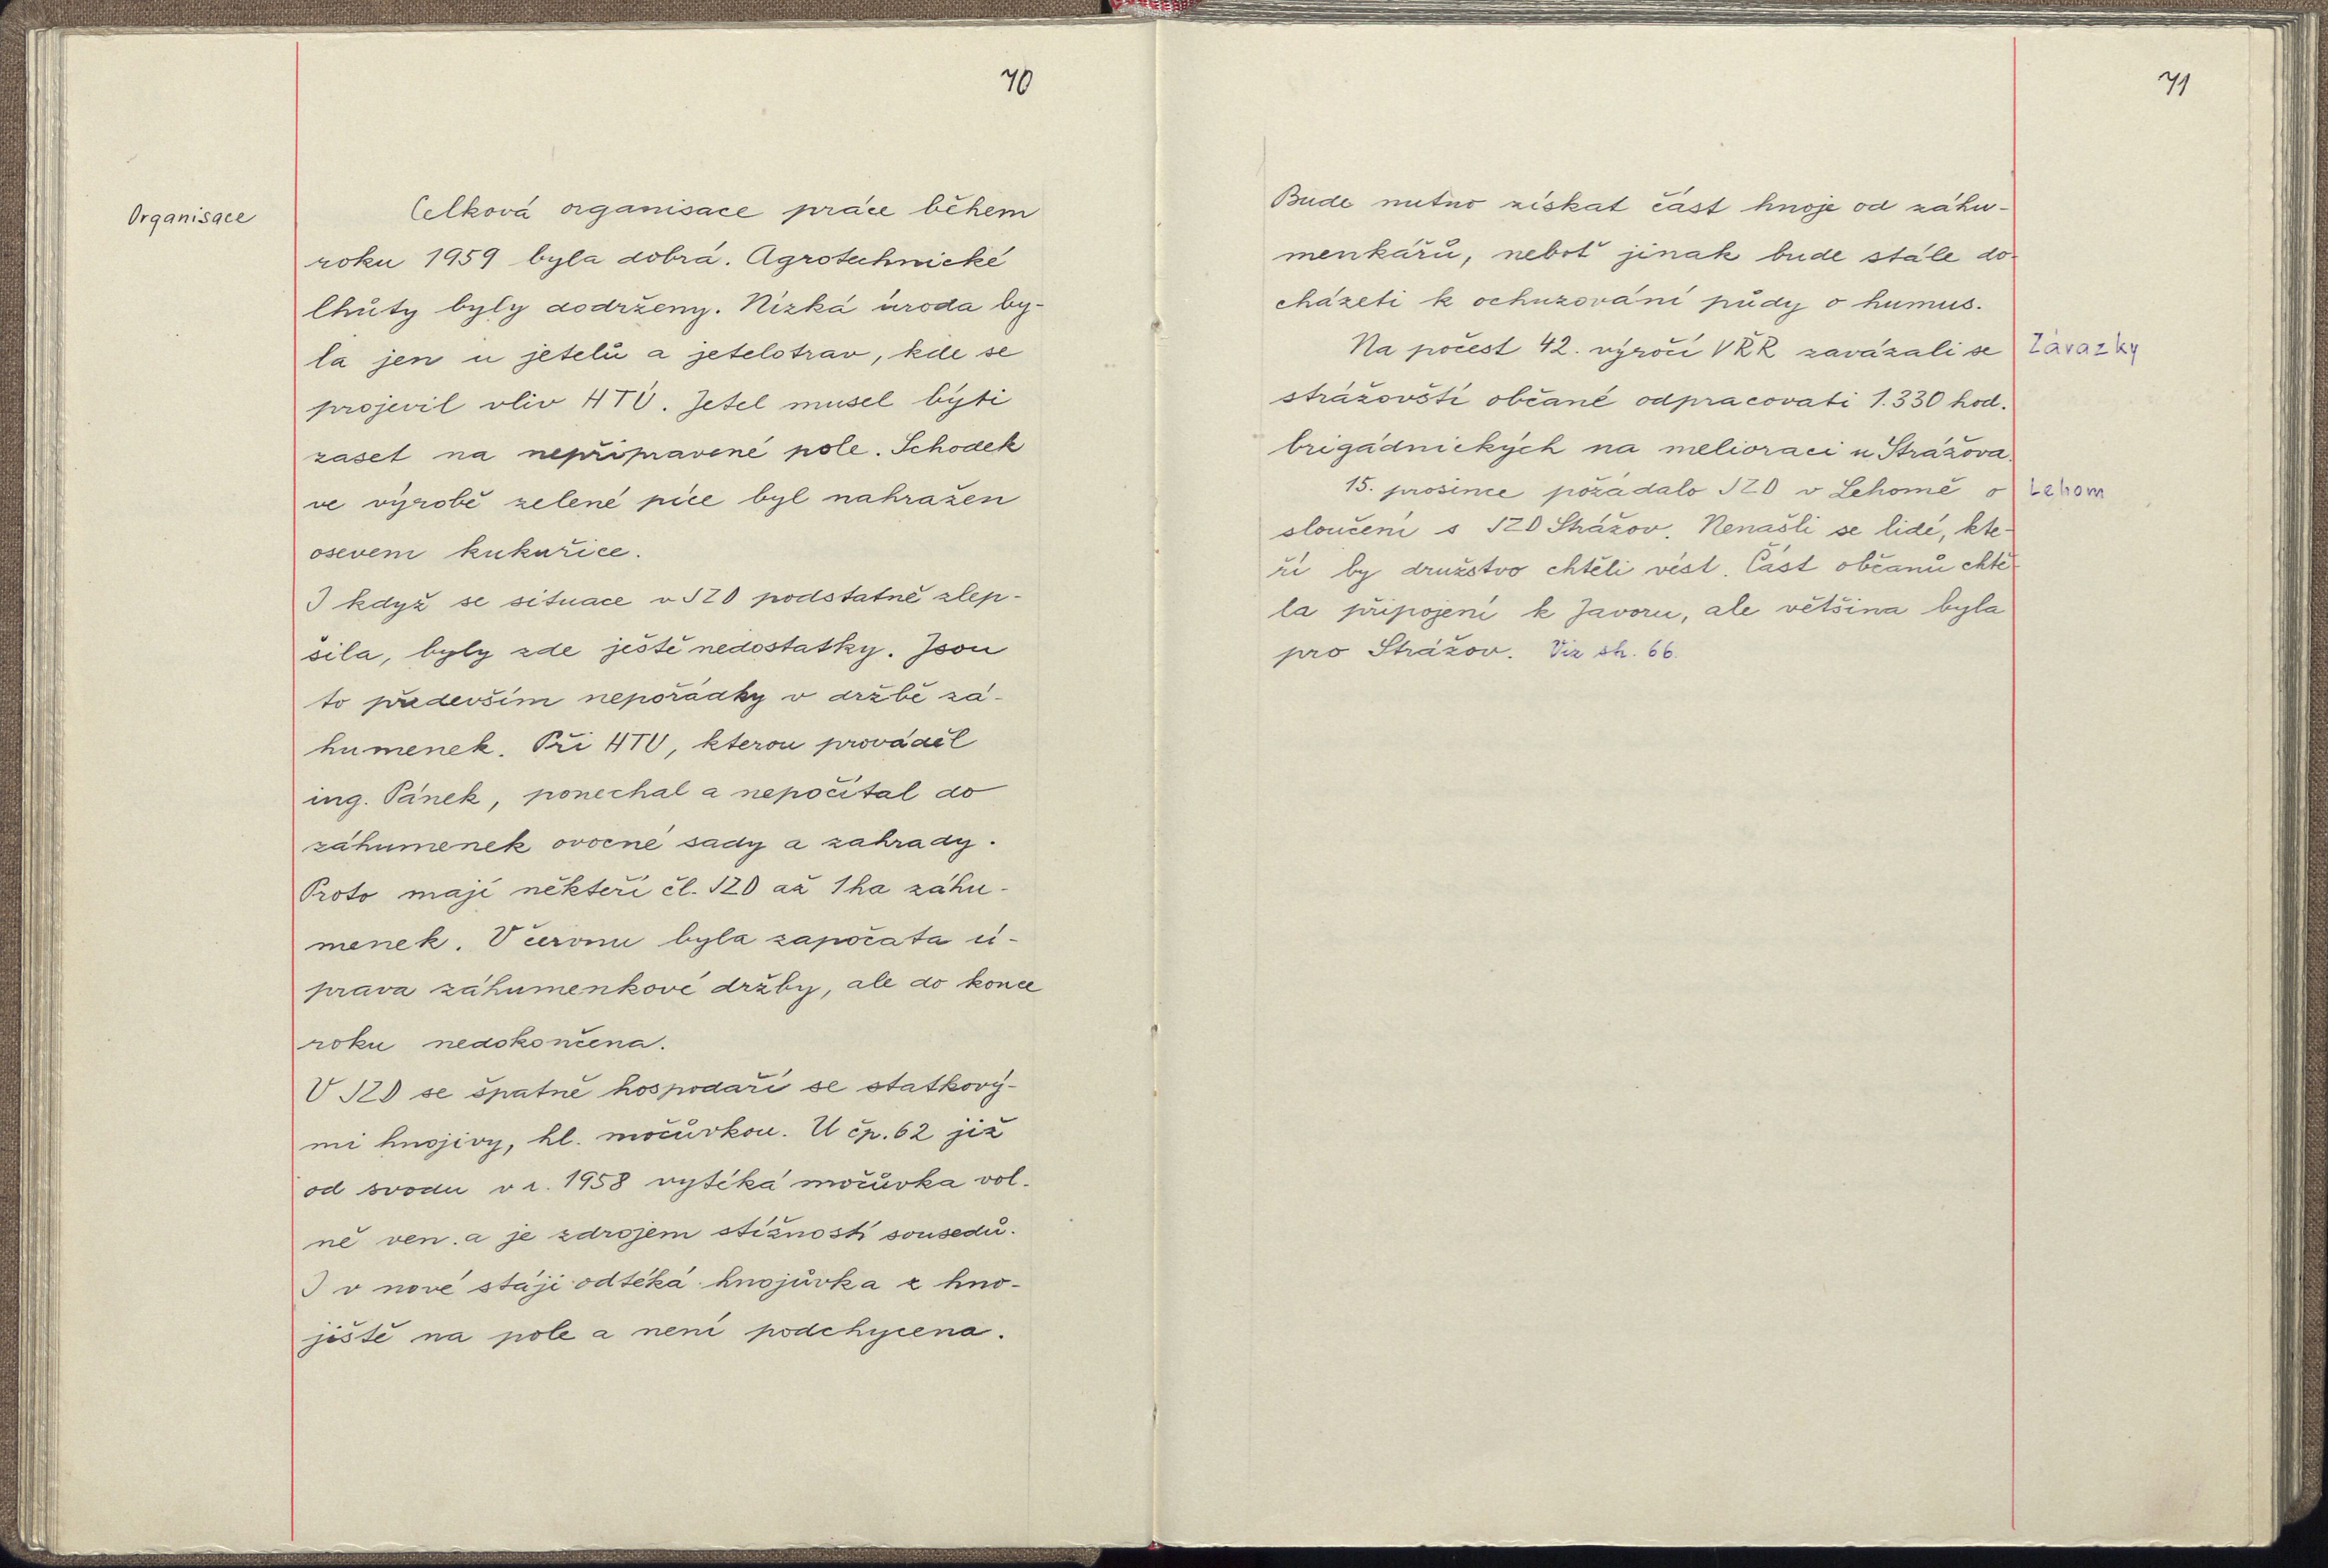 70
Organisace
Celková organisace práce během
roku 1959 byla dobrá. Agrotechnické
lhůty byly dodrženy. Nízká úroda by-
la jen u jetelů a jetelotrav, kde se
projevil vliv HTÚ. Jetel musel býti
zaset na nepřipravené pole. Schodek
ve výrobě zelené píce byl nahražen
osevem kukuřice.
I když se situace v JZD podstatně zlep-
šila, byly zde ještě nedostatky. Jsou
to především nepořádky v držbě zá-
humenek. Při HTÚ, kterou prováděl
ing. Pánek, ponechal a nepočítal do
záhumenek ovocné sady a zahrady.
Proto mají někteří čl. JZD až 1ha záhu-
menek. V červnu byla započata ú-
prava záhumenkové držby, ale do konce
roku nedokončena.
V JZD se špatně hospodaří se statkový-
mi hnojivy, hl. močůvkou. U čp. 62 již
od svodu v r. 1958 vytéká močůvka vol-
ně ven. a je zdrojem stížností sousedů.
I v nové stáji odtéká hnojůvka z hno-
jiště na pole a není podchycena.
71
Bude nutno získat část hnoje od záhu-
menkářů, neboť jinak bude stále do-
cházeti k ochuzování půdy o humus.
Na počest 42. výročí VŘR zavázali se
Závazky
strážovští občané odpracovati 1.330 hod.
brigádnických na melioraci u Strážova.
15. prosince požádalo JZD v Lehomě o
Lehom
sloučení s JZD Strážov. Nenašli se lidé, kte-
ří by družstvo chtěli vést. Část občanů chtě-
la připojení k Javoru, ale většina byla
pro Strážov. Viz str. 66.